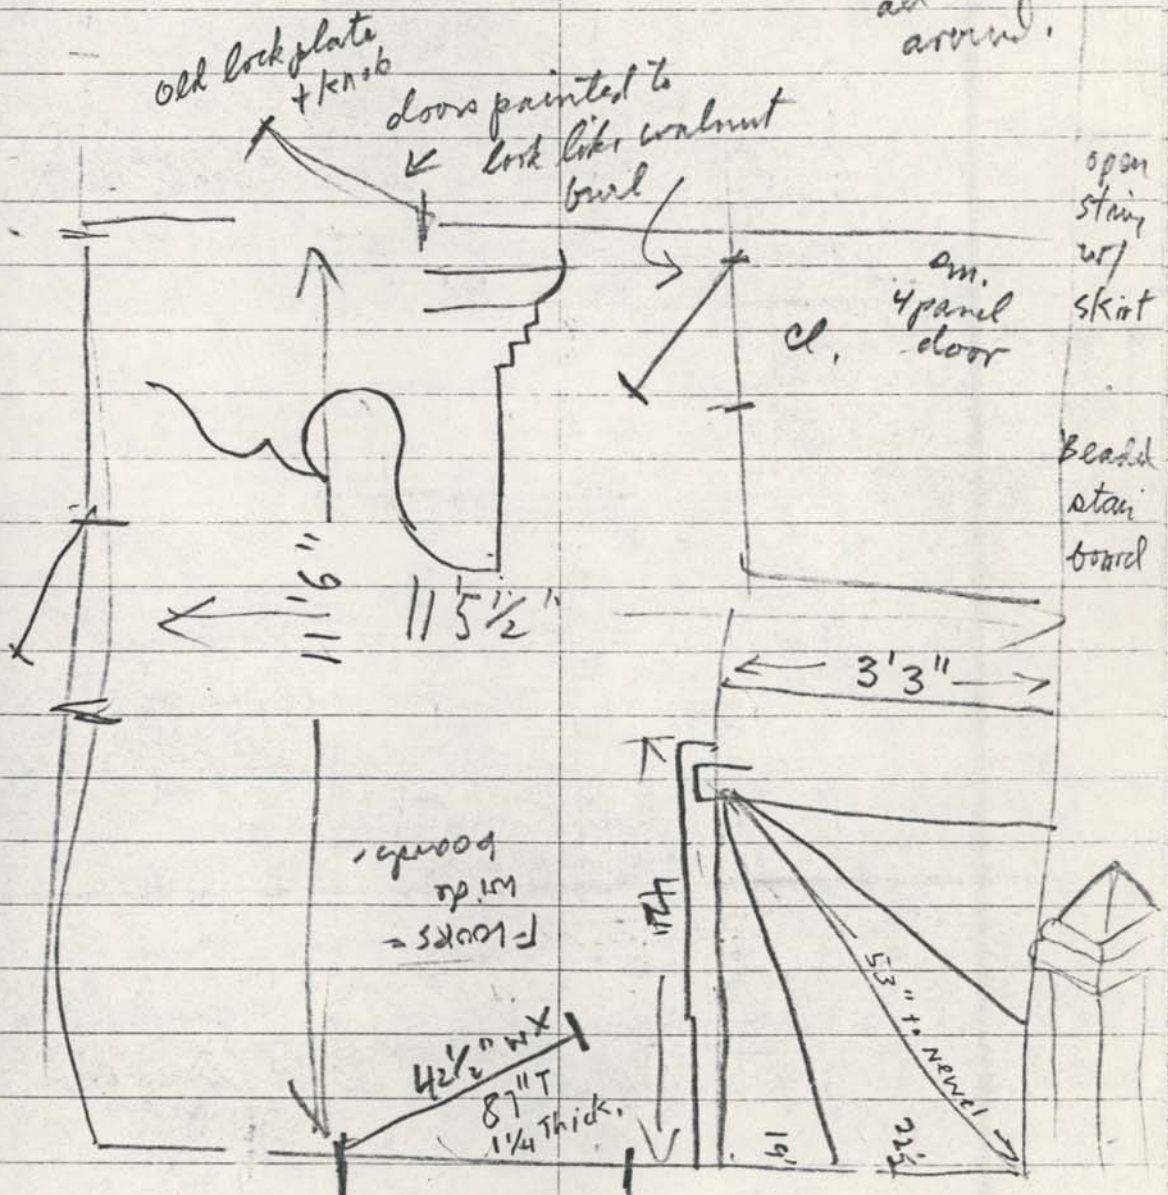 around.
old lock plate
+ knob
doors painted to
look like walnut
burl
open
string
w/
skirt
sm.
4 panel
door
cl.
Beaded
stair
board
11'6"
11'5½"
3'3"
42"
Floors =
wide
boards.
53" to Newel
42½" W X
87" T
1¼ Thick.
19"
22½